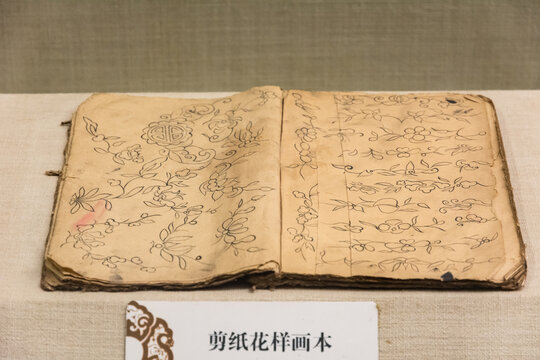 剪纸花样画本